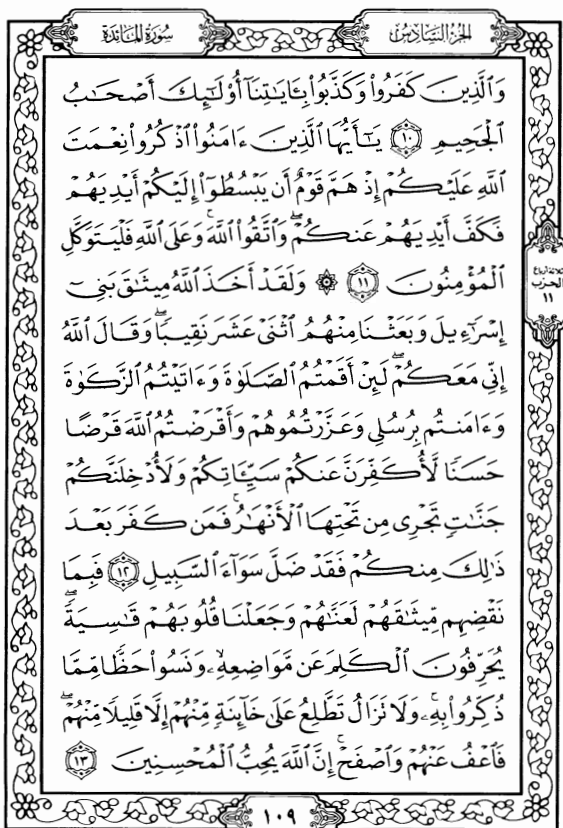 الجزء السادس
سورة المائدة
وَٱلَّذِينَ كَفَرُوا۟ وَكَذَّبُوا۟ بِـَٔايَـٰتِنَآ أُو۟لَـٰٓئِكَ أَصْحَـٰبُ
ٱلْجَحِيمِ ١٠ يَـٰٓأَيُّهَا ٱلَّذِينَ ءَامَنُوا۟ ٱذْكُرُوا۟ نِعْمَتَ
ٱللَّهِ عَلَيْكُمْ إِذْ هَمَّ قَوْمٌ أَن يَبْسُطُوٓا۟ إِلَيْكُمْ أَيْدِيَهُمْ
فَكَفَّ أَيْدِيَهُمْ عَنكُمْ ۖ وَٱتَّقُوا۟ ٱللَّهَ ۚ وَعَلَى ٱللَّهِ فَلْيَتَوَكَّلِ
ٱلْمُؤْمِنُونَ ١١ ۞ وَلَقَدْ أَخَذَ ٱللَّهُ مِيثَـٰقَ بَنِىٓ
إِسْرَٰٓءِيلَ وَبَعَثْنَا مِنْهُمُ ٱثْنَىْ عَشَرَ نَقِيبًا ۖ وَقَالَ ٱللَّهُ
إِنِّى مَعَكُمْ ۖ لَئِنْ أَقَمْتُمُ ٱلصَّلَوٰةَ وَءَاتَيْتُمُ ٱلزَّكَوٰةَ
وَءَامَنتُم بِرُسُلِى وَعَزَّرْتُمُوهُمْ وَأَقْرَضْتُمُ ٱللَّهَ قَرْضًا
حَسَنًا لَّأُكَفِّرَنَّ عَنكُمْ سَيِّـَٔاتِكُمْ وَلَأُدْخِلَنَّكُمْ
جَنَّـٰتٍ تَجْرِى مِن تَحْتِهَا ٱلْأَنْهَـٰرُ ۚ فَمَن كَفَرَ بَعْدَ
ذَٰلِكَ مِنكُمْ فَقَدْ ضَلَّ سَوَآءَ ٱلسَّبِيلِ ١٢ فَبِمَا
نَقْضِهِم مِّيثَـٰقَهُمْ لَعَنَّـٰهُمْ وَجَعَلْنَا قُلُوبَهُمْ قَـٰسِيَةً ۖ
يُحَرِّفُونَ ٱلْكَلِمَ عَن مَّوَاضِعِهِۦ ۙ وَنَسُوا۟ حَظًّا مِّمَّا
ذُكِّرُوا۟ بِهِۦ ۚ وَلَا تَزَالُ تَطَّلِعُ عَلَىٰ خَآئِنَةٍ مِّنْهُمْ إِلَّا قَلِيلًا مِّنْهُمْ ۖ
فَٱعْفُ عَنْهُمْ وَٱصْفَحْ ۚ إِنَّ ٱللَّهَ يُحِبُّ ٱلْمُحْسِنِينَ ١٣
ثلاثة أرباع
الحزب
١١
١٠٩